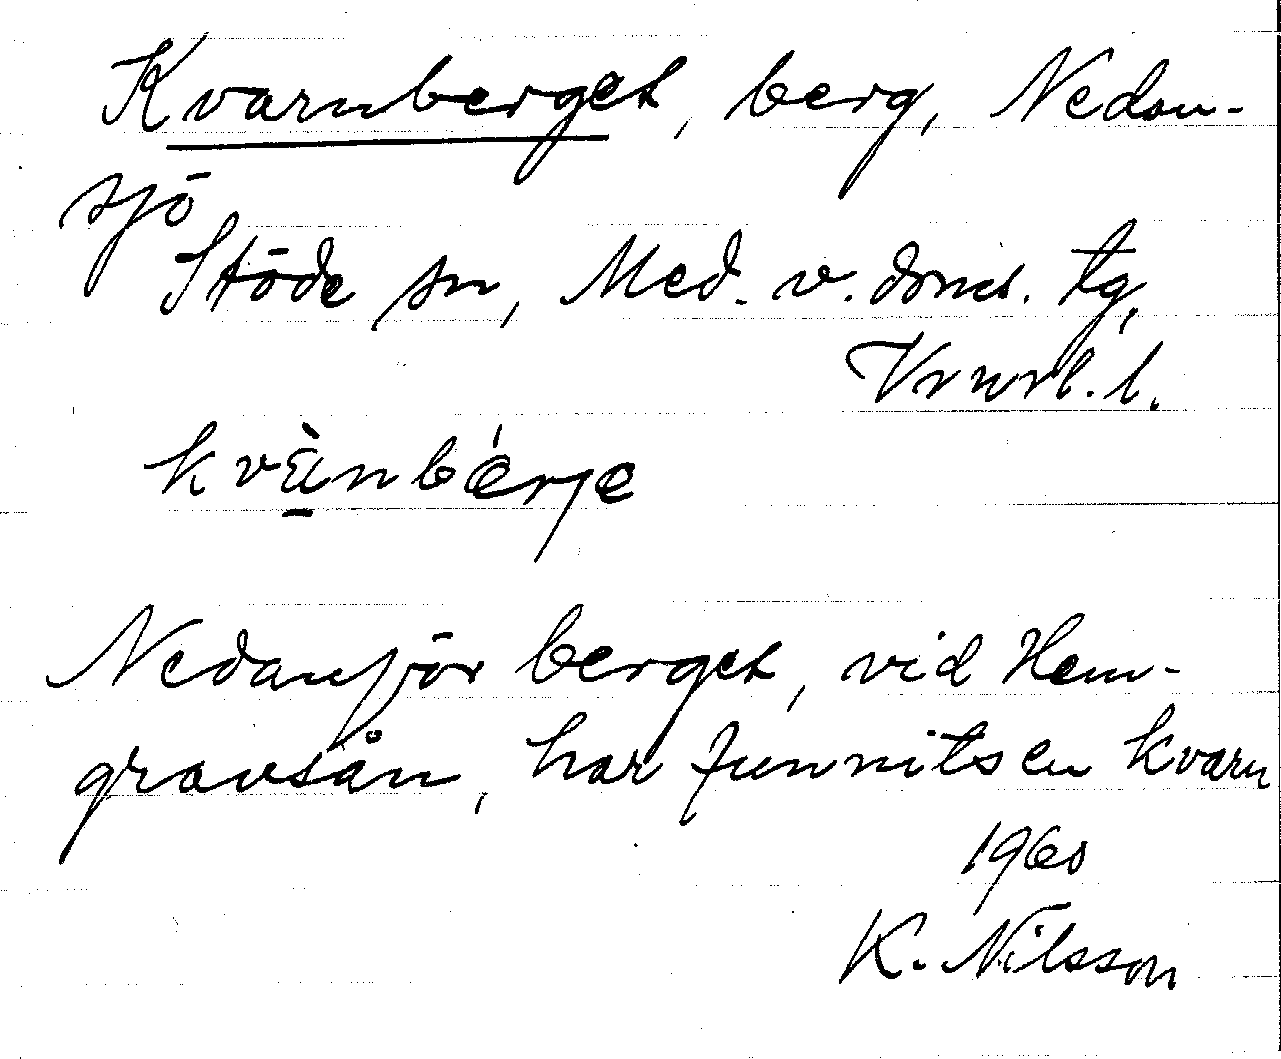 Kvarnberget, berg, Nedan-
sjö
Stöde sn, Med. v. doms. tg,
Vrnrl. l.
kvä̀nbérje
Nedanför berget, vid Hem-
gravsån, har funnits en kvarn
1960
K. Nilsson